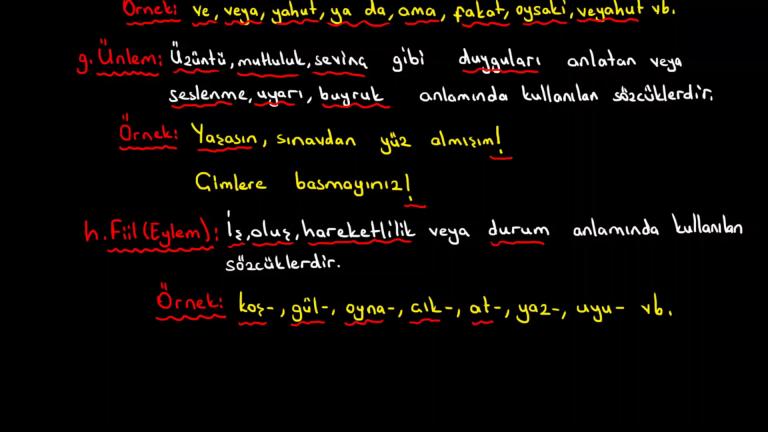 Örnek: ve, veya, yahut, ya da, ama, fakat, oysaki, veyahut vb.
g. Ünlem: Üzüntü, mutluluk, sevinç gibi duyguları anlatan veya
seslenme, uyarı, buyruk anlamında kullanılan sözcüklerdir.
Örnek: Yaşasın, sınavdan yüz almışım!
Çimlere basmayınız!
h. Fiil (Eylem): İş, oluş, hareketlilik veya durum anlamında kullanılan
sözcüklerdir.
Örnek: koş-, gül-, oyna-, çık-, at-, yaz-, uyu- vb.